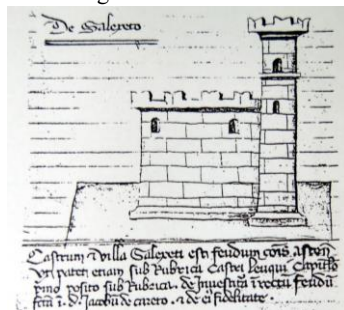 De Salexeto
Castrum & villa Salexeti est feudum cōis astēn̄
vt patet etiam sub Rubrica Castri
posito sub Rubrica. de Inuestitura i rectū feudū
fcta i. d. Jacobū de careto. & de ei fidelitate.